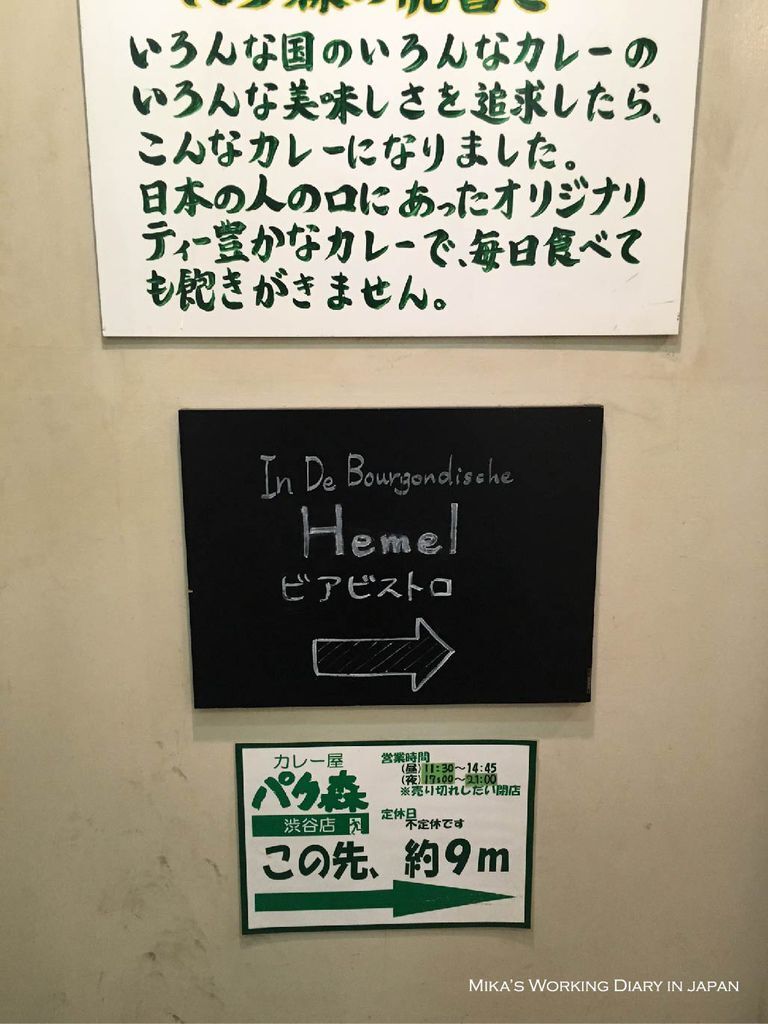 いろんな国のいろんなカレーの
いろんな美味しさを追求したら、
こんなカレーになりました。
日本の人の口にあったオリジナリ
ティー豊かなカレーで、毎日食べて
も飽きがきません。
In De Bourgondische
Hemel
ビアビストロ
カレー屋
パク森
渋谷店
営業時間
(昼)11:30〜14:45
(夜)17:00〜21:00
※売り切れしだい閉店
定休日
不定休です
この先、約9m
MIKA'S WORKING DIARY IN JAPAN